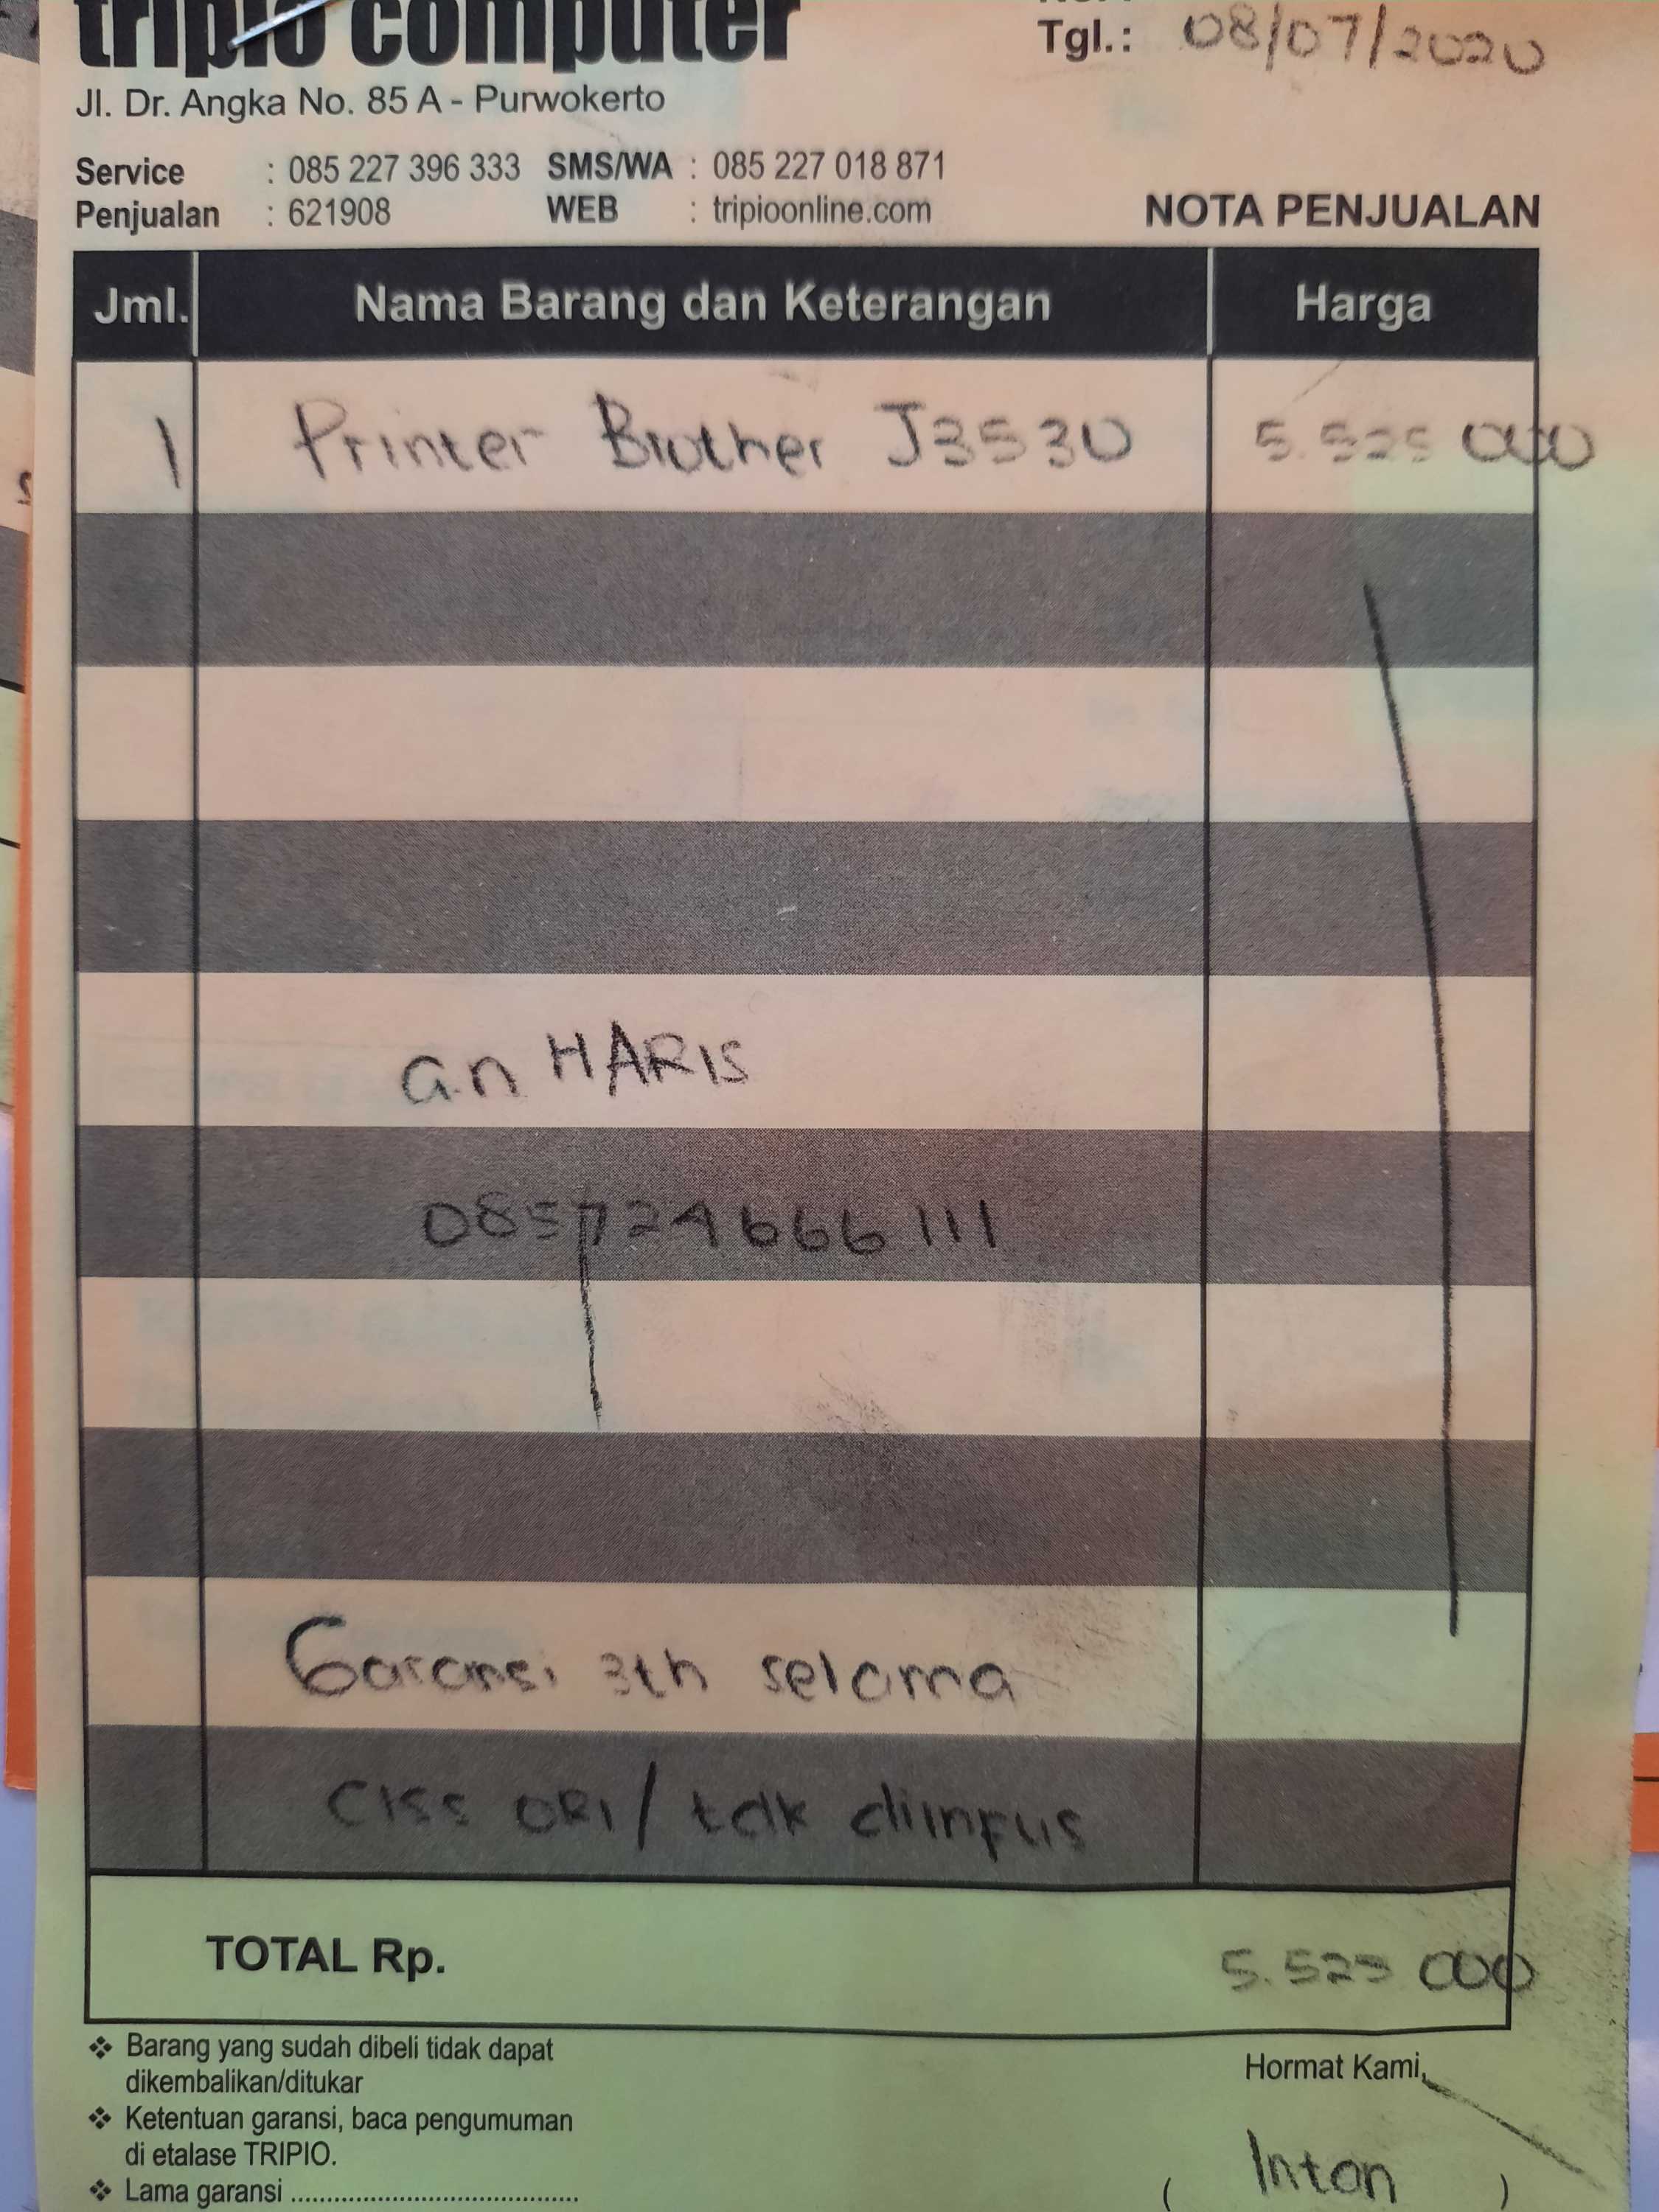 tripio computer
Tgl.: 08/07/2020
Jl. Dr. Angka No. 85 A - Purwokerto
Service : 085 227 396 333 SMS/WA : 085 227 018 871
Penjualan : 621908 WEB : tripioonline.com
NOTA PENJUALAN
Jml. Nama Barang dan Keterangan Harga
1 Printer Brother J3530 5.525 000
a.n HARIS
085724666111
Garansi 3th selama
CISS ORI / tdk diinfus
TOTAL Rp. 5.525 000
❖ Barang yang sudah dibeli tidak dapat
dikembalikan/ditukar
❖ Ketentuan garansi, baca pengumuman
di etalase TRIPIO.
❖ Lama garansi ........................................
Hormat Kami,
( Intan )